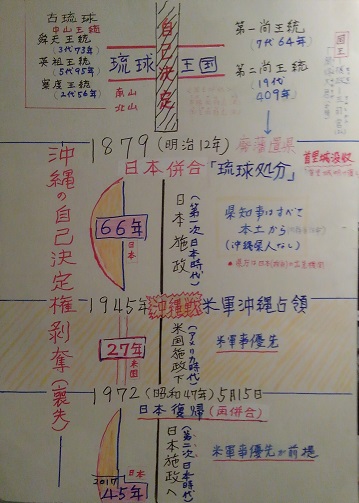 古琉球
中山王統
舜天王統
(3代73年)
英祖王統
(5代95年)
察度王統
(2代56年)
自己決定
琉球王国
南山
北山
第一尚王統
(7代64年)
第二尚王統
(19代
409年)
国王
1879(明治12年) 廃藩置県
日本併合「琉球処分」
首里城没収
沖縄の自己決定権剥奪(喪失)
66年
日本
日本施政
(第一次日本時代)
県知事はすべて
本土から
(沖縄県人なし)
1945年 沖縄戦 米軍沖縄占領
27年
米国
米国施政下
(アメリカ時代)
米軍事優先
1972(昭和47年)5月15日
日本復帰(再併合)
2017
日本
45年
日本施政へ
(第二次日本時代)
米軍事優先が前提